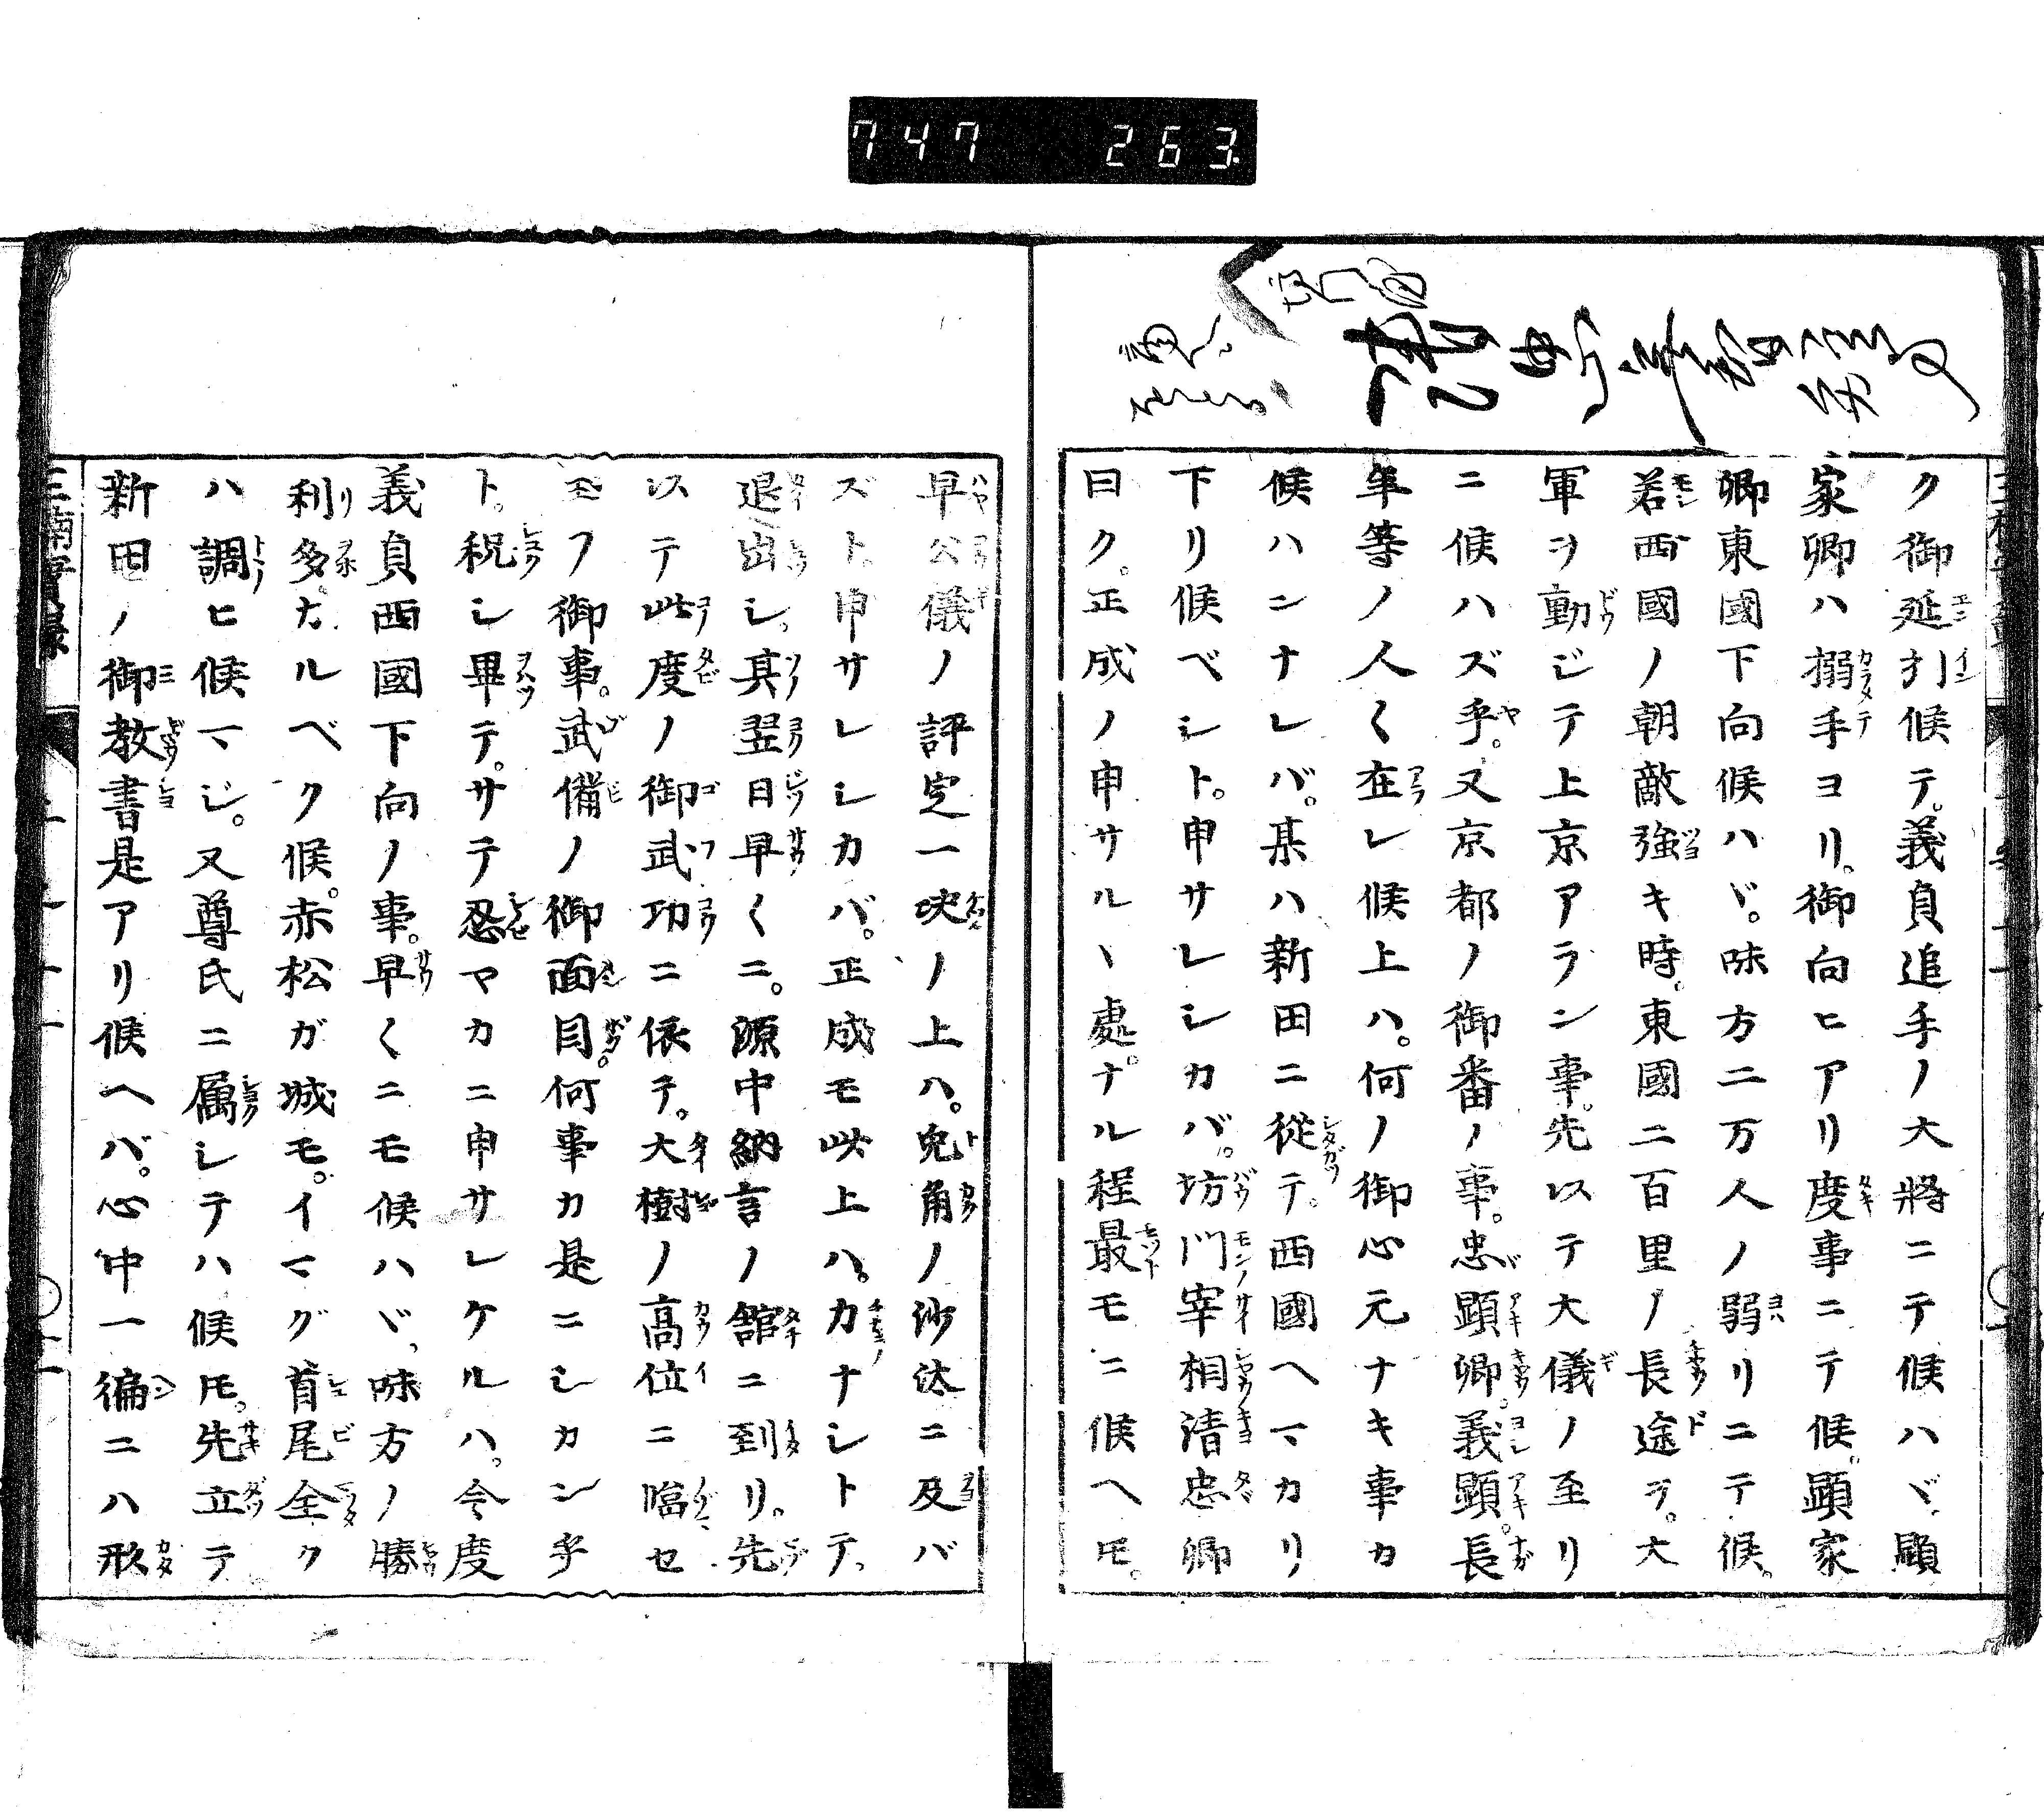 747 263.
ク御延引候テ。義貞追手ノ大將ニテ候ハヾ、顯
家卿ハ搦手ヨリ。御向ヒアリ度事ニテ候。顯家
卿東國下向候ハヾ。味方二万人ノ弱リニテ候。
若西國ノ朝敵強キ時。東國二百里ノ長途ヲ。大
軍ヲ動ジテ上京アラン事。先以テ大儀ノ至リ
ニ候ハズ乎。又京都ノ御番ノ事。忠顯卿。義顯。長
年等ノ人〱在レ候上ハ。何ノ御心元ナキ事カ
候ハンナレバ。某ハ新田ニ從テ。西國ヘマカリ
下リ候ベシト。申サレシカバ。坊門宰相清忠卿
曰ク。正成ノ申サルヽ處。ナル程最モニ候ヘ𪜈。
早公儀ノ評定一决ノ上ハ。兎角ノ沙汰ニ及バ
ズト。申サレシカバ。正成モ此上ハ。力ナシトテ。
退出シ。其翌日早〱ニ。源中納言ノ舘ニ到リ。先
以テ此度ノ御武功ニ依テ。大樹ノ高位ニ臨セ
玉フ御事。武備ノ御面目。何事カ是ニシカン乎
ト。祝シ畢テ。サテ忍マカニ申サレケルハ。今度
義貞西國下向ノ事。早〱ニモ候ハヾ、味方ノ勝
利多カルベク候。赤松ガ城モ。イマダ首尾全ク
ハ調ヒ候マジ。又尊氏ニ属シテハ候𪜈。先立テ
新田ノ御教書是アリ候ヘバ。心中一徧ニハ形